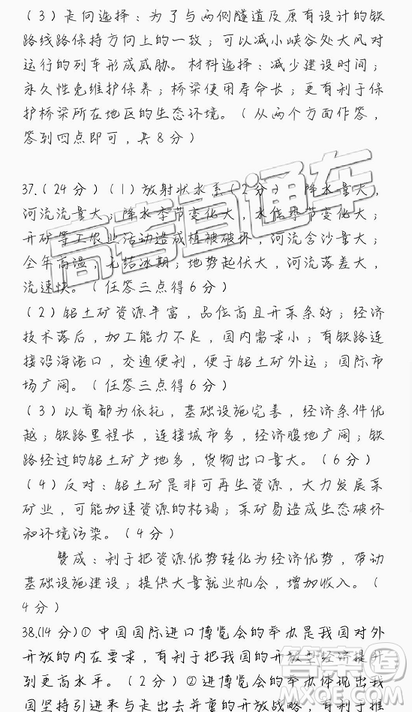 （3）走向选择：为了与两侧隧道及原有设计的铁
路线路保持方向上的一致；可以减小峡谷处大风对
运行的列车形成威胁。材料选择：减少建设时间；
永久性免维护保养；桥梁使用寿命长；更有利于保
护桥梁所在地区的生态环境。（从两个方面作答，
答到四点即可，共8分）
37.（24分）（1）放射状水系（2分） 降水量大，
河流流量大，降水季节变化大，水位季节变化大；
开矿等工农业活动造成植被破坏，河流含沙量大；
全年高温，无结冰期；地势起伏大，河流落差大，
流速快。（任答三点得6分）
（2）铝土矿资源丰富，品位高且开采条好；经济
技术落后，加工能力不足，国内需求小；有铁路连
接沿海港口，交通便利，便于铝土矿外运；国际市
场广阔。（任答三点得6分）
（3）以首都为依托，基础设施完善，经济条件优
越；铁路里程长，连接城市多，经济腹地广阔；铁
路经过的铝土矿产地多，货物出口量大。（6分）
（4）反对：铝土矿是非可再生资源，大力发展采
矿业，可能加速资源的枯竭；采矿易造成生态破坏
和环境污染。（4分）
赞成：利于把资源优势转化为经济优势，带动
基础设施建设；提供大量就业机会，增加收入。（
4分）
38.(14分)①中国国际进口博览会的举办是我国对外
开放的内在要求，有利于把我国的开放型经济提升
到更高水平。（2分）②进博览会的举办体现出我
国坚持引进来与走出去并重的开放战略，有利于推
高考直通车